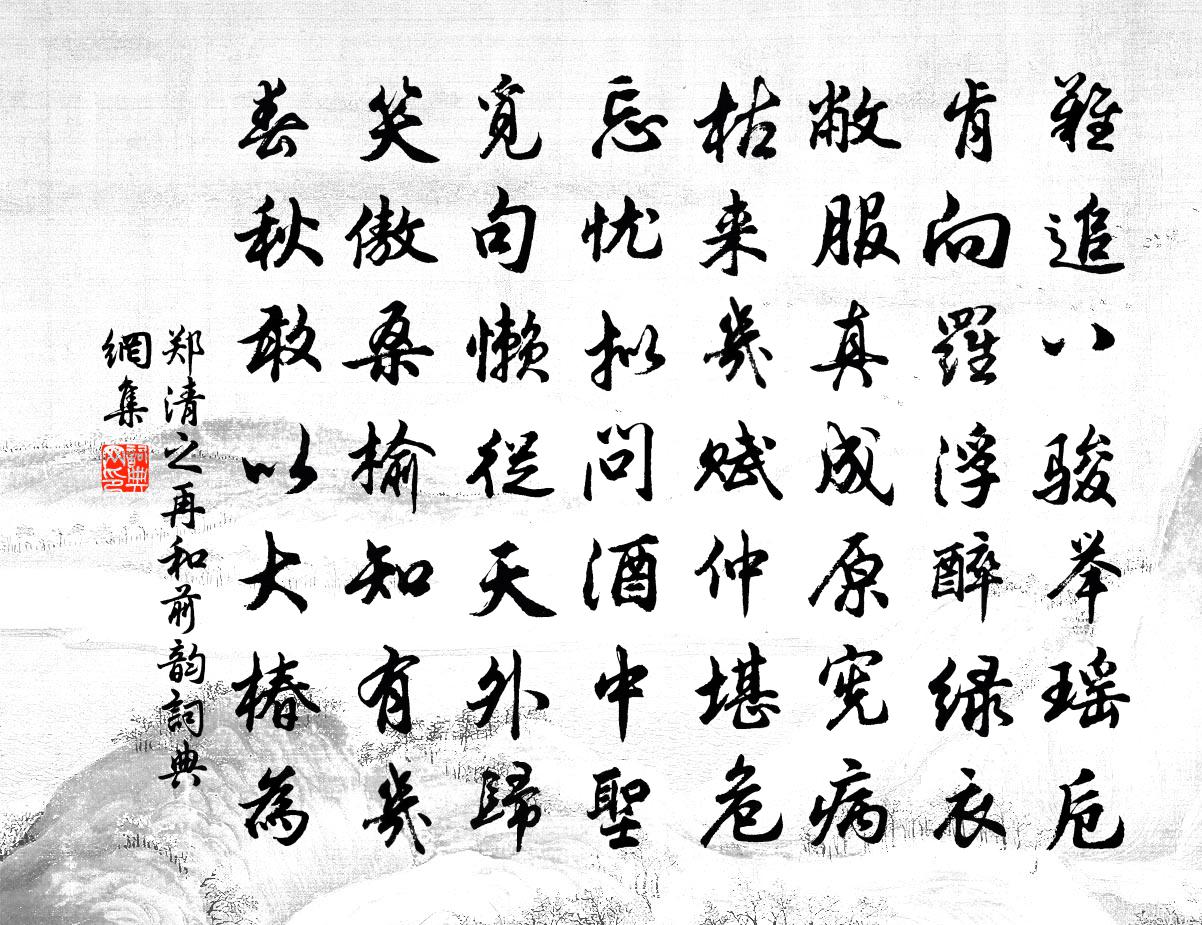 難追八骏举瑶卮
肯向羅浮醉绿衣
敝服真成原宪病
枯来幾赋仲堪危
忘忧拟问酒中聖
觅句懒從天外歸
笑傲桑榆知有幾
春秋敢以大椿為
郑清之再和前韵詞典
網集
詞典
网印